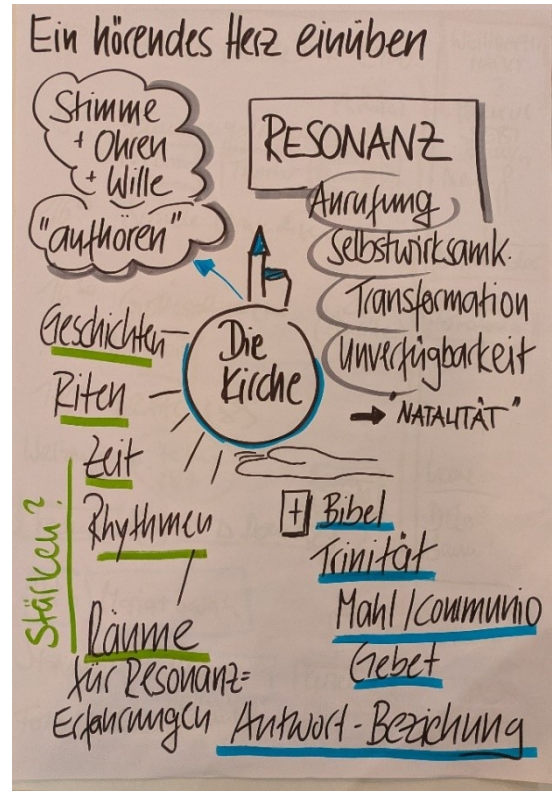 Ein hörendes Herz einüben
Stimme
+ Ohren
+ Wille
"aufhören"
RESONANZ
Anrufung
Selbstwirksamk.
Transformation
Unverfügbarkeit
→ "NATALITÄT"
Die
Kirche
Geschichten
Riten
Zeit
Rhythmen
Räume
für Resonanz=
Erfahrungen
Stärken?
Bibel
Trinität
Mahl/Communio
Gebet
Antwort-Beziehung